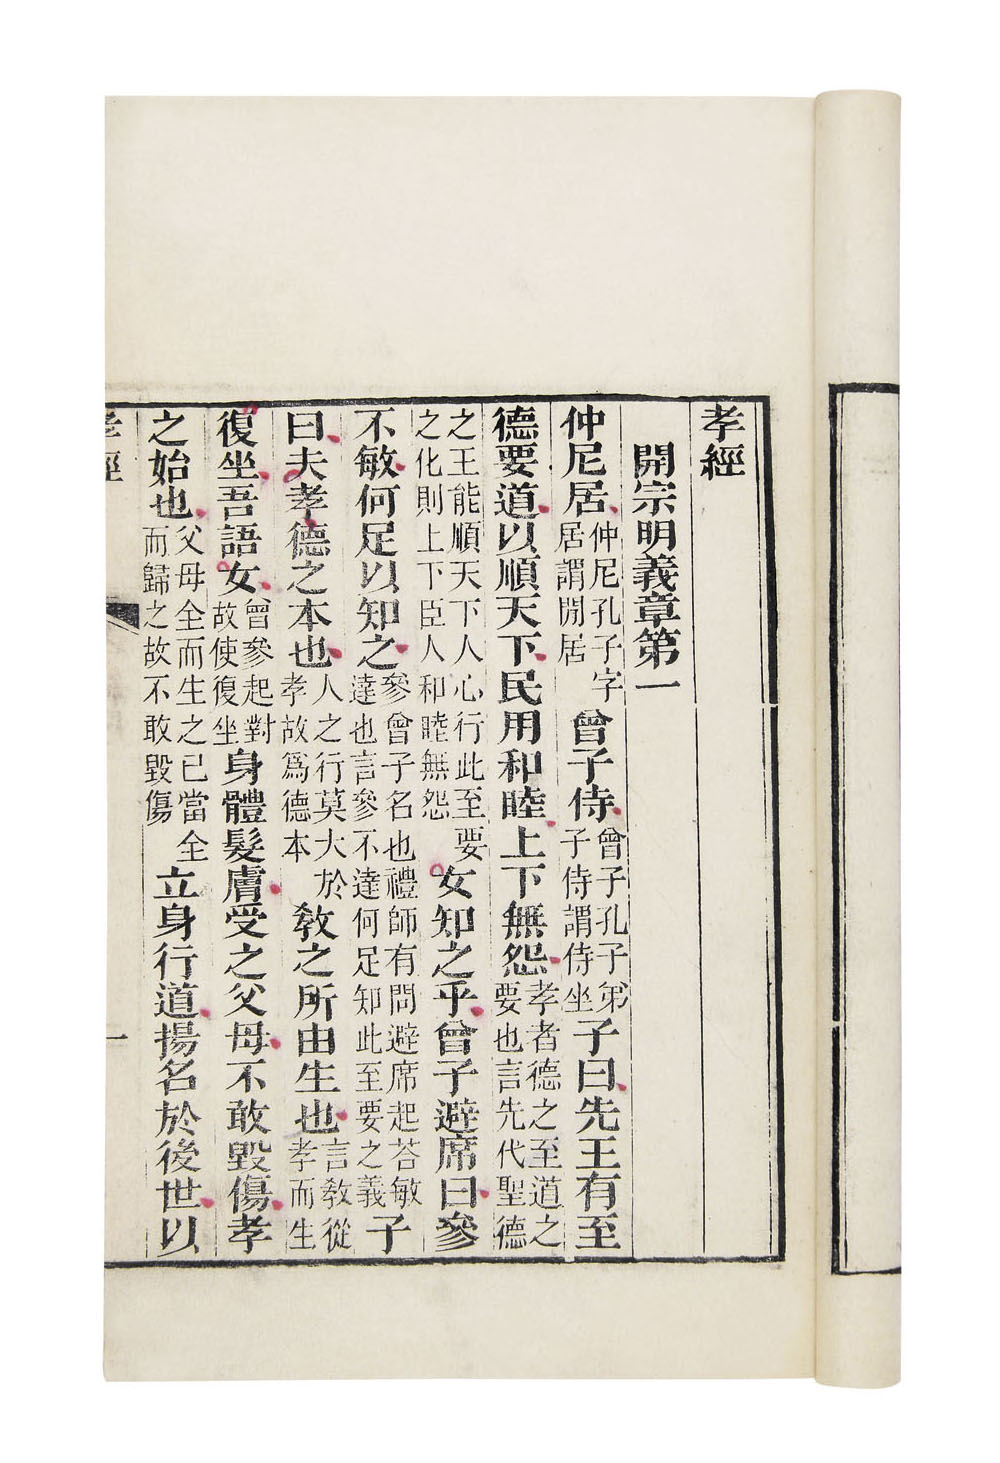 孝經
開宗明義章第一
仲尼居仲尼孔子字居謂閒居曾子侍曾子孔子弟子侍謂侍坐子曰先王有至
德要道以順天下民用和睦上下無怨孝者德之至道之要也言先代聖德
之王能順天下人心行此至要之化則上下臣人和睦無怨女知之乎曾子避席曰參
不敏何足以知之參曾子名也禮師有問避席起荅敏達也言參不達何足知此至要之義子
曰夫孝德之本也人之行莫大於孝故爲德本教之所由生也言教從孝而生
復坐吾語女曾參起對故使復坐身體髮膚受之父母不敢毀傷孝
之始也父母全而生之已當全而歸之故不敢毀傷立身行道揚名於後世以
孝經
一